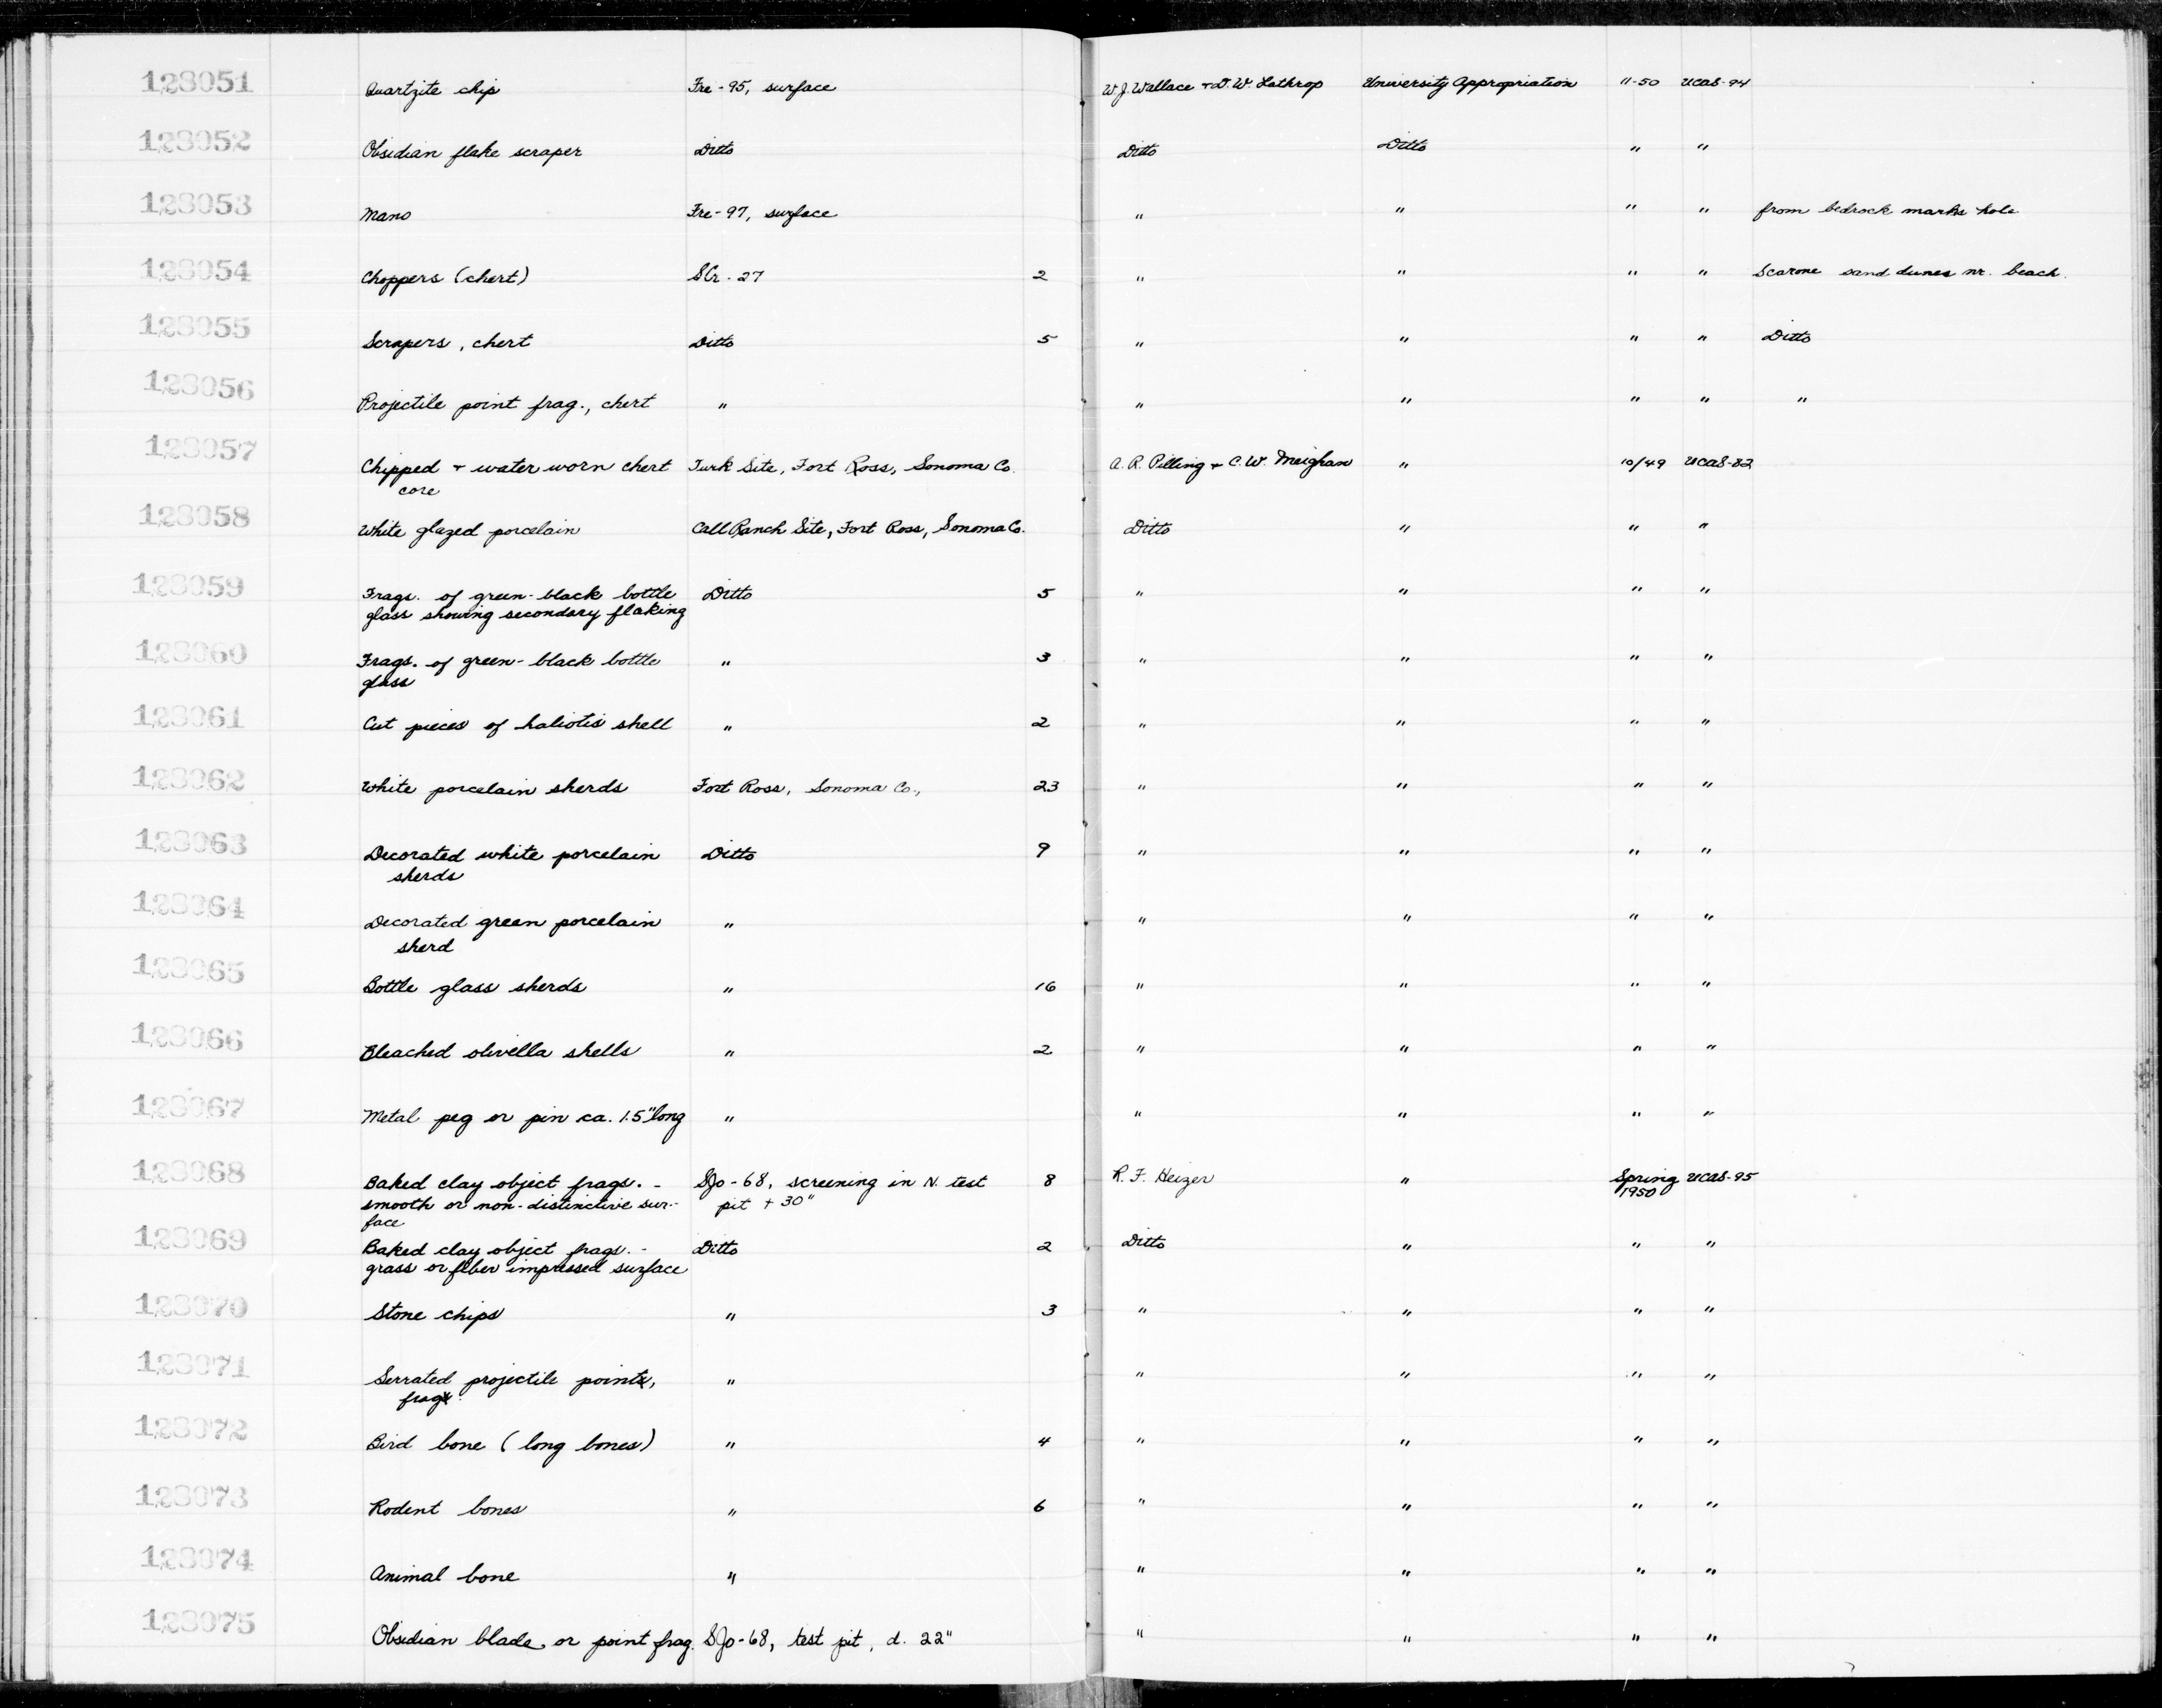 128051 Quartzite chip Fre-95, surface W.J. Wallace + D.W. Lathrop University Appropriation 11-50 UCAS-94
128052 Obsidian flake scraper Ditto Ditto Ditto " "
128053 Mano Fre-97, surface " " " " from bedrock hole
128054 Choppers (chert) SCr-27 2 " " " " sand dunes nr. beach.
128055 Scrapers, chert Ditto 5 " " " " Ditto
128056 Projectile point frag., chert " " " " " "
128057 Chipped + water worn chert Turk Site, Fort Ross, Sonoma Co. A.R. Pilling + C.W. Meighan " 10/49 UCAS-82
core
128058 White glazed porcelain Call Ranch Site, Fort Ross, Sonoma Co. Ditto " " "
128059 Frags. of green-black bottle Ditto 5 " " " "
glass showing secondary flaking
128060 Frags. of green-black bottle " 3 " " " "
glass
128061 Cut pieces of haliotis shell " 2 " " " "
128062 White porcelain sherds Fort Ross, Sonoma Co., 23 " " " "
128063 Decorated white porcelain Ditto 9 " " " "
sherds
128064 Decorated green porcelain " " " " "
sherd
128065 Bottle glass sherds " 16 " " " "
128066 Bleached olivella shells " 2 " " " "
128067 Metal peg or pin ca. 1.5" long " " " " "
128068 Baked clay object frags. - SJo-68, screening in N. test 8 R.F. Heizer " Spring UCAS-95
smooth or non-distinctive sur- pit + 30" 1950
face
128069 Baked clay object frags. - Ditto 2 Ditto " " "
grass or fiber impressed surface
128070 Stone chips " 3 " " " "
128071 Serrated projectile point, " " " " "
frag.
128072 Bird bone (long bones) " 4 " " " "
128073 Rodent bones " 6 " " " "
128074 Animal bone " " " " "
128075 Obsidian blade or point frag. SJo-68, test pit, d. 22" " " " "